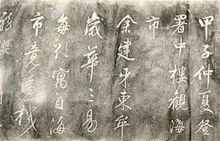 甲子仲夏登
署中樓觀海
市
余建牙東牟
歲華三易
每欲寓目海
市竟為機